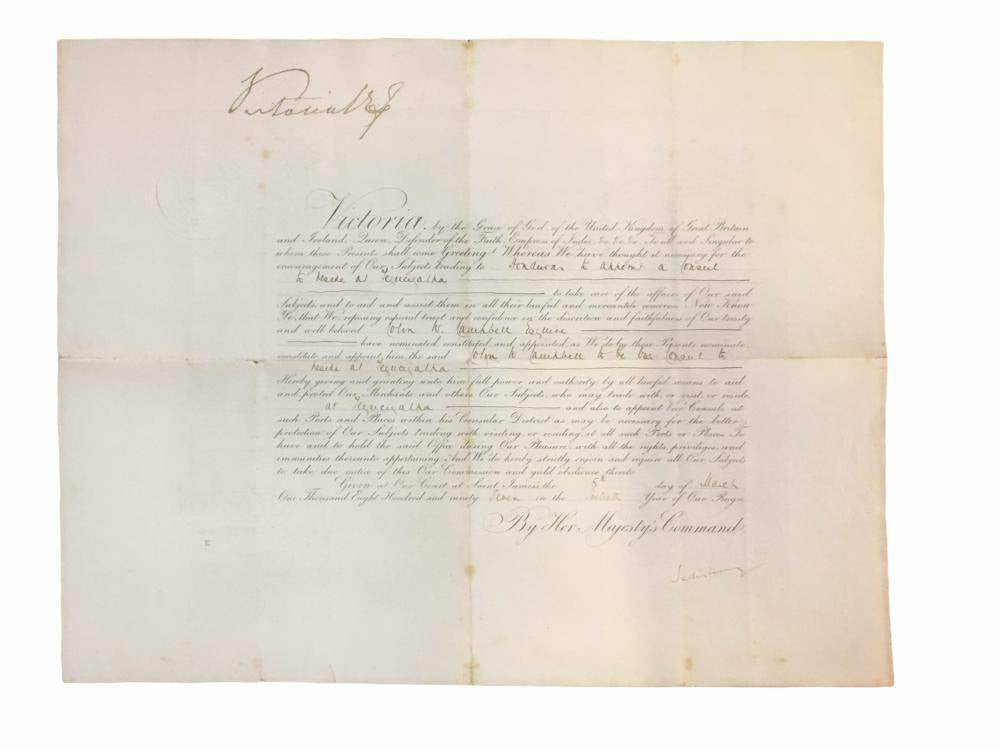 Victoria R I
Victoria, by the Grace of God, of the United Kingdom of Great Britain
and Ireland, Queen, Defender of the Faith, Empress of India, &c. &c. &c. To all and Singular to
whom these Presents shall come Greeting! Whereas We have thought it necessary for the
encouragement of Our Subjects trading to Honduras to appoint a Consul
to reside at Tegucigalpa
to take care of the affairs of Our said
Subjects and to aid and assist them in all their lawful and mercantile concerns, Now Know
Ye, that We, reposing especial trust and confidence in the discretion and faithfulness of Our trusty
and well beloved John W. Campbell Esquire
have nominated, constituted and appointed, as We do by these Presents nominate,
constitute, and appoint him the said John W. Campbell to be Our Consul to
reside at Tegucigalpa
Hereby giving and granting unto him full power and authority, by all lawful means to aid
and protect Our Merchants and others Our Subjects, who may trade with, or visit, or reside,
at Tegucigalpa and also to appoint Vice Consuls at
such Ports and Places within his Consular District as may be necessary for the better
protection of Our Subjects trading with, residing or at all such Ports or Places. To
have and to hold the said Office during Our Pleasure, with all the rights, privileges, and
immunities thereunto appertaining. And We do hereby strictly enjoin and require all Our Subjects
to take due notice of this Our Commission and yield obedience thereto
Given at Our Court at Saint James's, the 5th day of March
One Thousand Eight Hundred and ninety seven in the Sixtieth Year of Our Reign.
By Her Majesty's Command
E
Salisbury